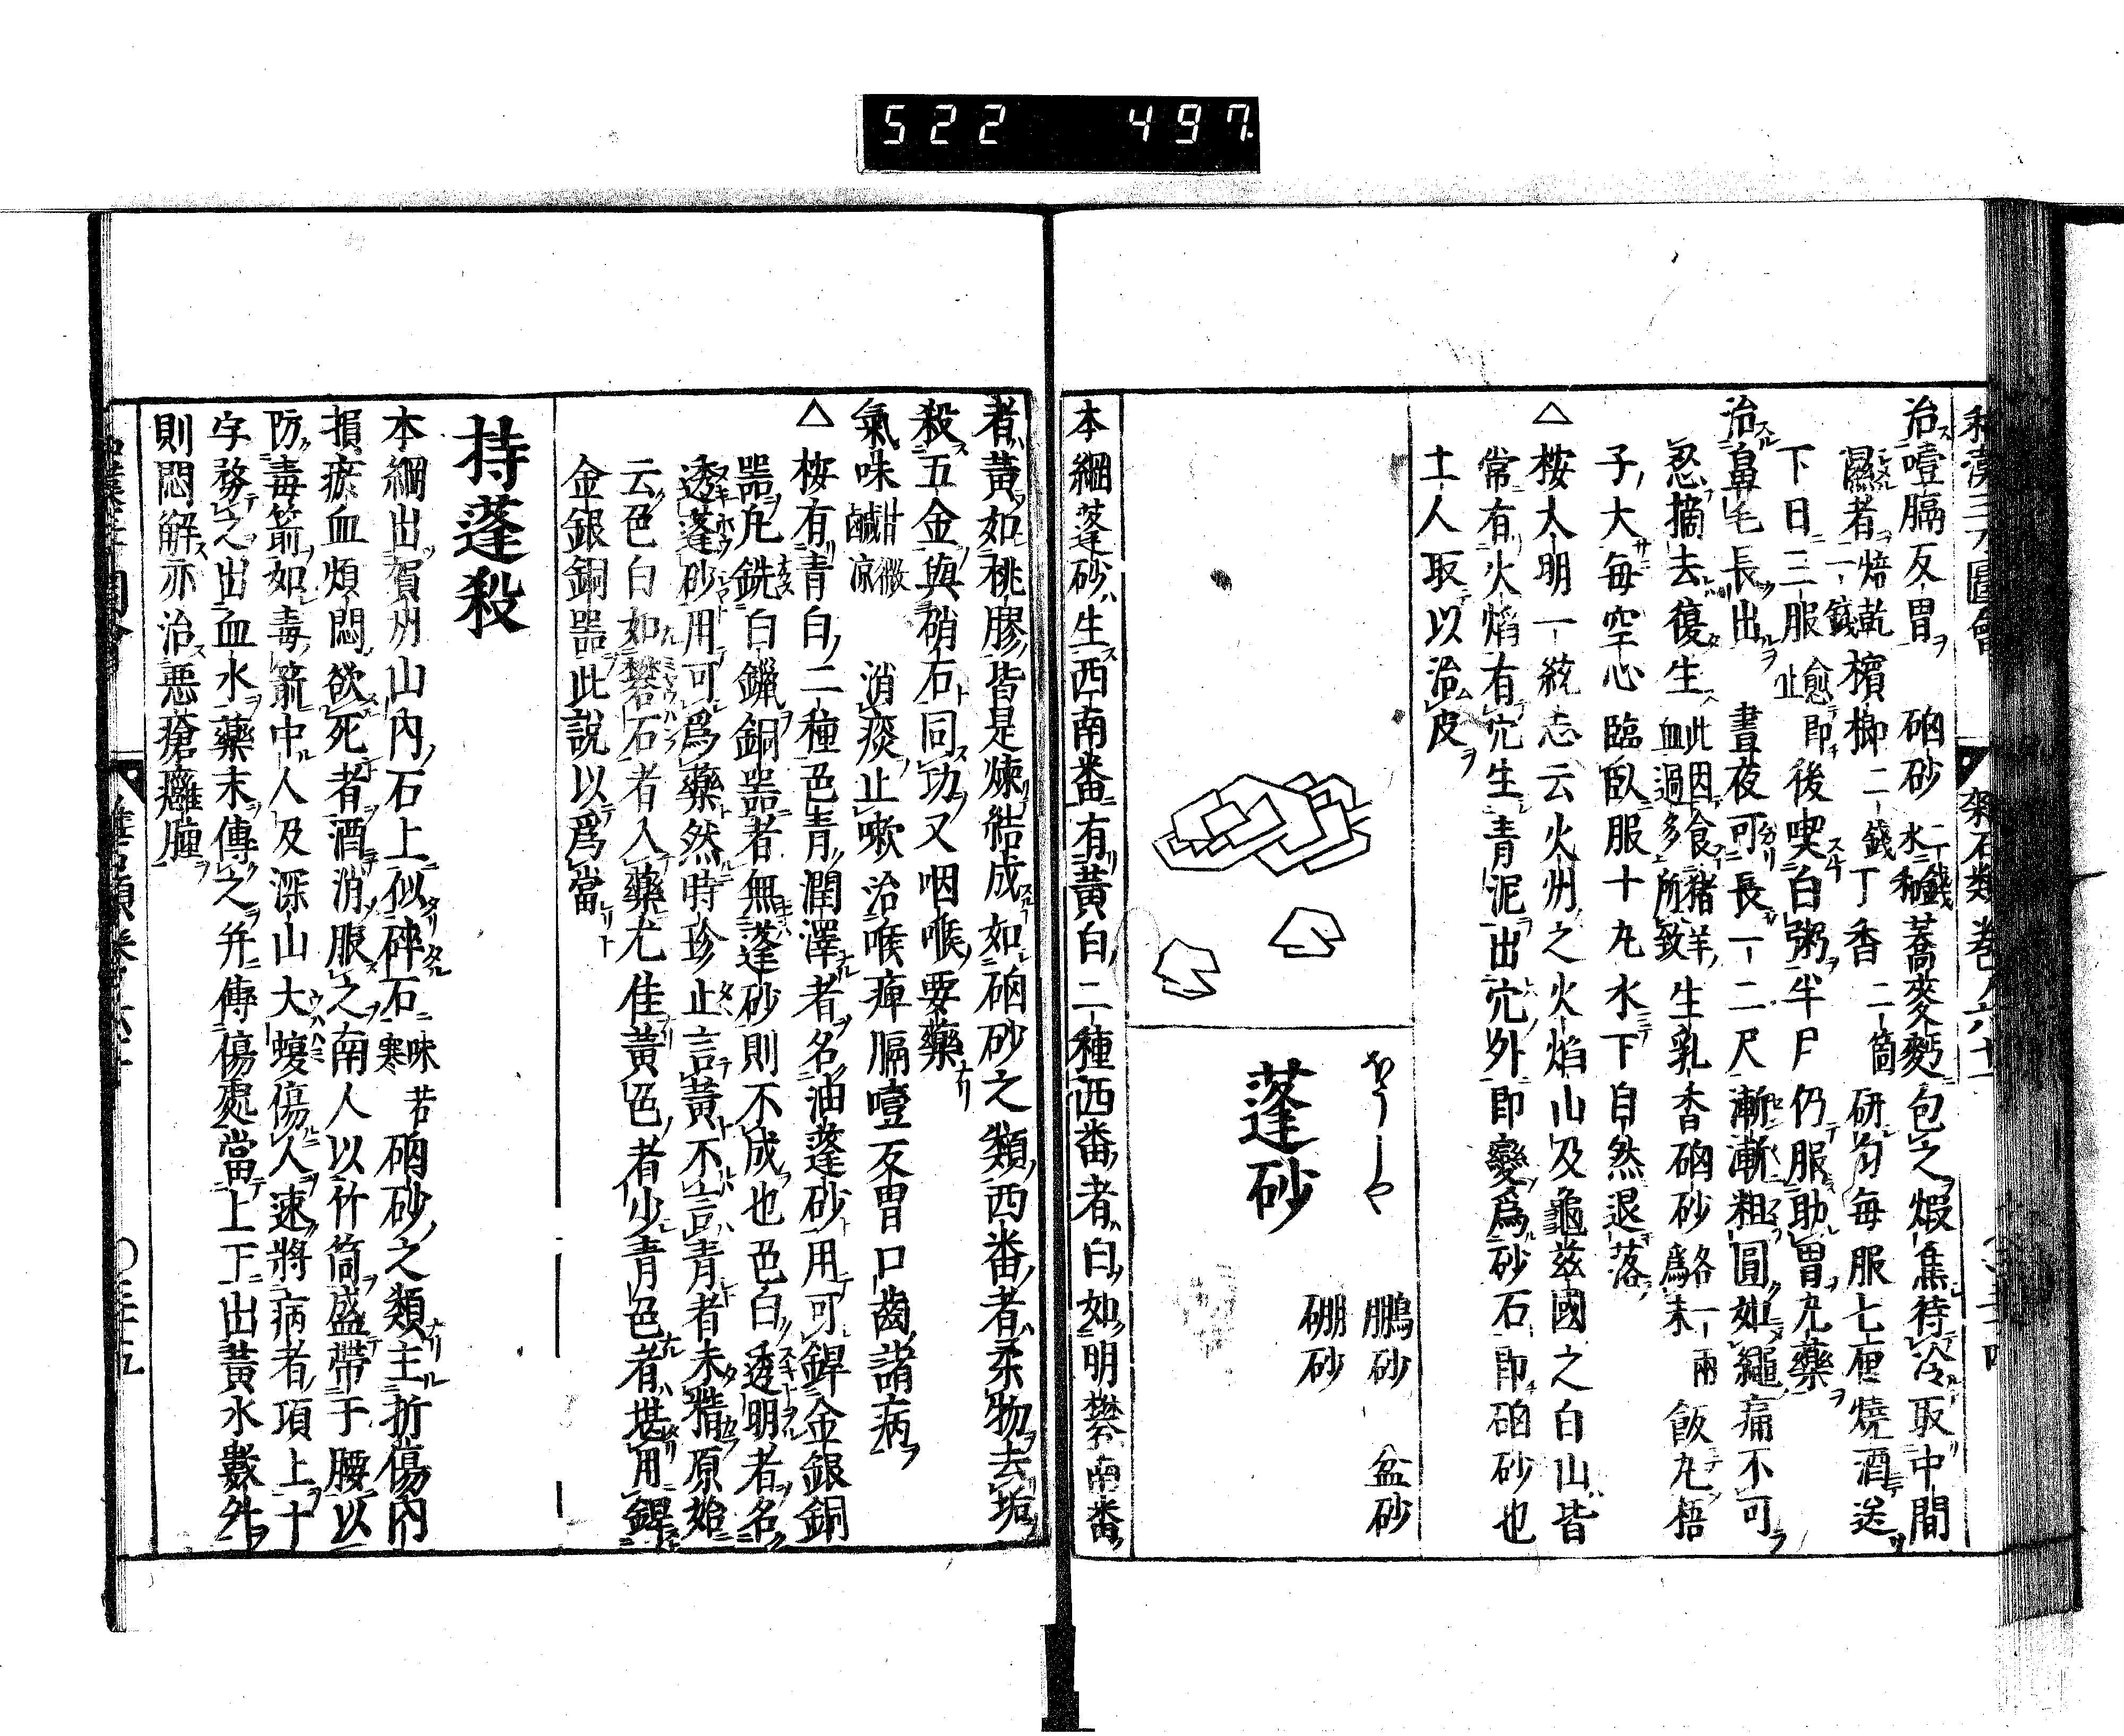 522 497
治噎膈反胃 硇砂二錢水和蕎麥麪包之煅焦待冷取中間
濕者焙乾一錢檳榔二錢丁香二箇研匀每服七厘燒酒送
下日三服愈即止後喫白粥半月仍服助胃丸藥
治鼻毛長出 晝夜可長一二尺漸漸粗圓如繩痛不可
忍摘去復生此因食豬羊血過多所致生乳香硇砂各一兩爲末飯丸梧
子大每空心臨臥服十丸水下自然退落
△按大明一統志云火州之火焰山及龜茲國之白山皆
常有火焰有穴生青泥出穴外即變爲砂石即硇砂也
土人取以治皮
蓬砂
鵬砂 盆砂
硼砂
本綱蓬砂生西南番有黃白二種西番者白如明礬南番
者黃如桃膠皆是煉結成如硇砂之類西番者柔物去垢
殺五金與硝石同功又咽喉要藥
氣味甘微鹹凉 消痰止嗽治喉痺膈噎反胃口齒諸病
△按有青白二種色青潤澤者名油蓬砂用可銲金銀銅
噐凢銑白鑞銅噐者無蓬砂則不成也色白透明者名
透蓬砂用可爲藥然時珍止言黃不言青者未精原始
云色白如礬石者入藥尤佳黃色者少青色者堪用銲
金銀銅噐此說以爲當
持蓬殺
本綱出賀州山內石上似碎石味苦寒硇砂之類主折傷內
損瘀血煩悶欲死者酒消服之南人以竹筒盛帶于腰以
防毒箭如毒箭中人及深山大蝮傷人速將病者項上十
字務之出血水藥末傳之幷傳傷處當上下出黃水數外
則悶解亦治惡瘡癰腫